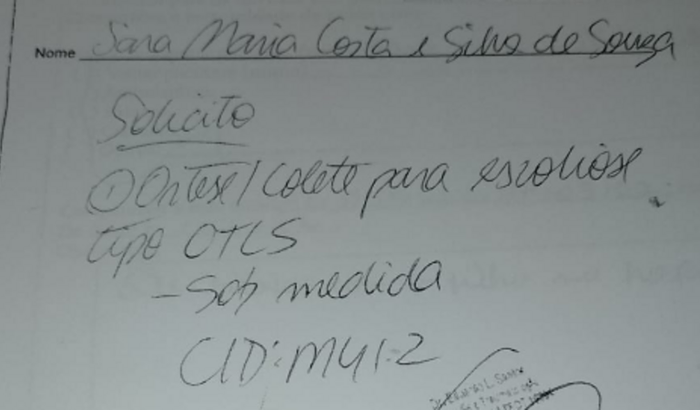 Nome Sara Maria Costa e Silva de Souza
Solicito
① Ortese/Colete para escoliose
tipo OTLS
- Sob medida
CID: M41.2